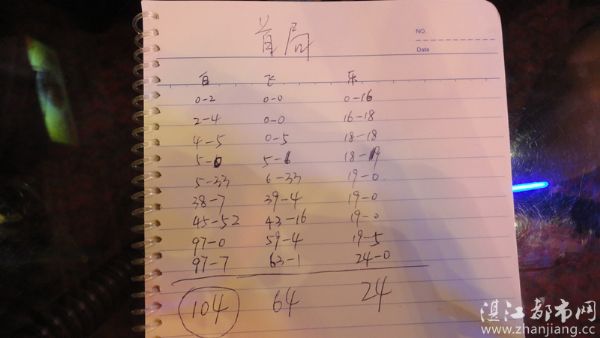 首局
NO.
Date
白 飞 乐
0-2 0-0 0-16
2-4 0-0 16-18
4-5 0-5 18-18
5-0 5-1 18-19
5-33 6-33 19-0
38-7 39-4 19-0
45-52 43-16 19-0
97-0 59-4 19-5
97-7 63-1 24-0
104 64 24
湛江都市网
www.zhanjiang.cc